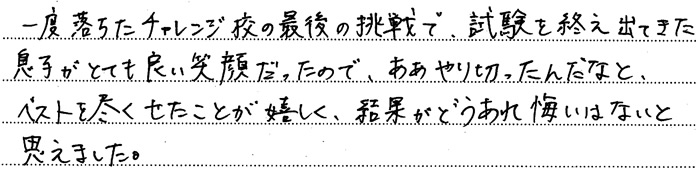 一度落ちたチャレンジ校の最後の挑戦で、試験を終え出てきた
息子がとても良い笑顔だったので、ああやり切ったんだなと、
ベストを尽くせたことが嬉しく、結果がどうあれ悔いはないと
思えました。